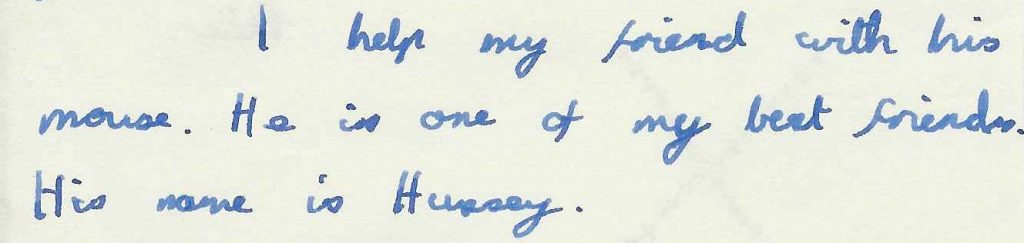 I help my friend with his
mouse. He is one of my best friends.
His name is Hussey.